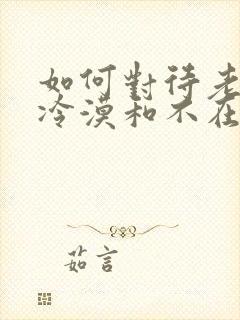 如何對待老
冷漠和不在
茹言